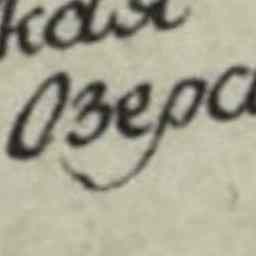 кая
Озера